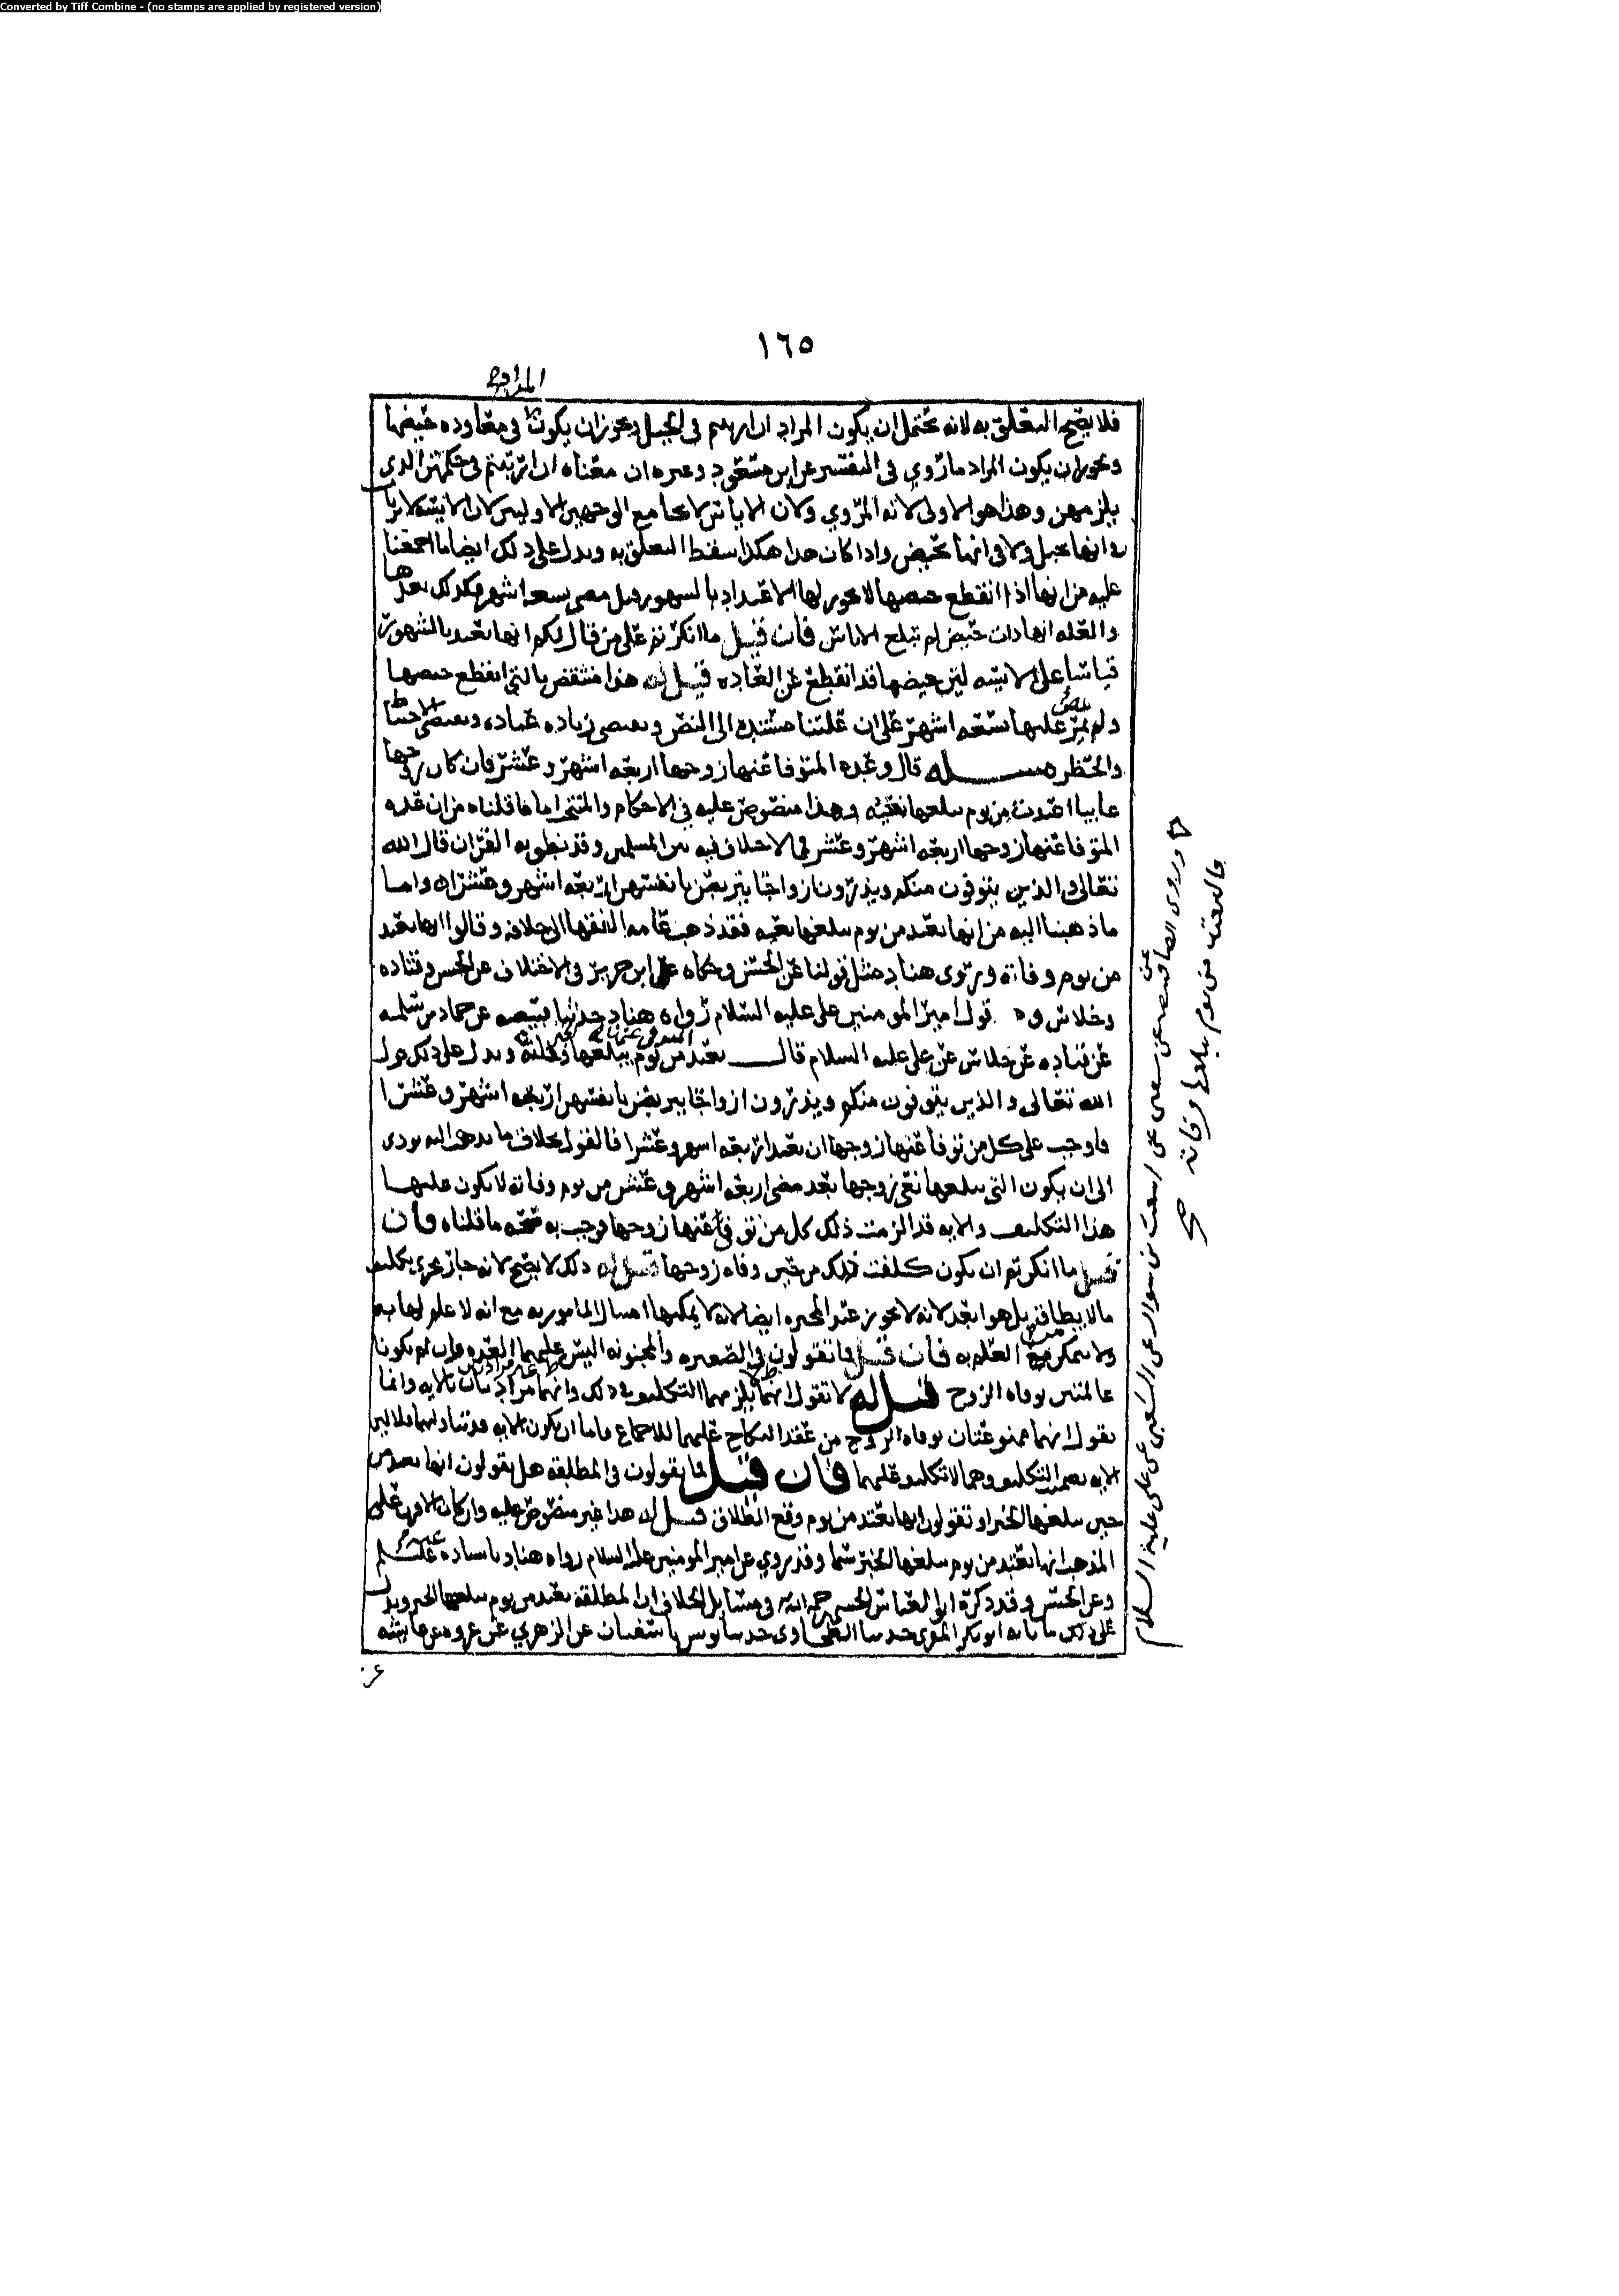 Converted by Tiff Combine - (no stamps are applied by registered version)
١٦٥
المراد
فلا يصح التعلق به لانه يحتمل ان يكون المراد ان ارتبتم في الحبل ويجوز ان يكون في معاوده حيضها
ويجوز ان يكون المراد ما روي في التفسير عن ابن مسعود وغيره ان معناه ان ارتبتم في حكمهن الذي
يلزمهن وهذا هو الاولى لانه المروي ولان الاياس لا يجامع الوجهين الاوليين لان الايسه لا يرتاب
في انها تحبل ولا في انها تحيض واذا كان هذا هكذا سقط التعلق به ويدل على ذلك ايضا ما اجمعنا
عليه من انها اذا انقطع حيضها لا يجوز لها الاعتداد بالشهور قبل مضي تسعه اشهر فكذلك بعدها
والعله انها ذات حيض لم تبلغ الاياس فان قيل ما انكرتم على من قال لكم انها تعتد بالشهور
قياسا على الايسه لان حيضها قد انقطع عن العاده قيل له هذا منتقض بالتي انقطع حيضها
ولم يمر عليها تسعه اشهر على ان علتنا مستنده الى النص وتقتضي زياده عباده وتقتضي الاحتياط
والحظر مسله قال وعده المتوفا عنها زوجها اربعه اشهر وعشر فان كان زوجها
غايبا اعتدت من يوم يبلغها نعيه وهذا منصوص عليه في الاحكام والمنتخب اما ما قلناه من ان عده
المتوفا عنها زوجها اربعه اشهر وعشر فمما لا خلاف فيه بين المسلمين وقد نطق به القران قال الله
تعالى والذين يتوفون منكم ويذرون ازواجا يتربصن بانفسهن اربعه اشهر وعشرا واما
ما ذهبنا اليه من انها تعتد من يوم يبلغها نعيه فقد ذهب عامه الفقها الى خلافه وقالوا انها تعتد
من يوم وفاته وروى هناد مثل قولنا عن الحسن وحكاه ابن جرير في الاختلاف عن الحسن وقتاده
وخلاس وهو قول امير المومنين علي عليه السلام رواه هناد حدثنا قبيصه عن حماد بن سلمه
عن قتاده عن خلاس عن علي عليه السلام قال تعتد من يوم يبلغها ويدل على ذلك قول
الله تعالى والذين يتوفون منكم ويذرون ازواجا يتربصن بانفسهن اربعه اشهر وعشرا
فاوجب على كل من توفا عنها زوجها ان تعتد اربعه اشهر وعشرا فالقول بخلاف ما نذهب اليه يودي
الى ان يكون التي يبلغها نعي زوجها بعد مضي اربعه اشهر وعشر من يوم وفاته لا يكون عليها
هذا التكليف والايه قد الزمت ذلك كل من توفى عنها زوجها فوجب به صحه ما قلناه فان
قيل ما انكرتم ان يكون كلفت ذلك من حين وفاه زوجها قيل له ذلك لا يصح لانه جار مجرى تكليف
ما لا يطاق بل هو ابعد لانه لا يجوز عند المجبره ايضا لانه لا يمكنها امتثال المامور به مع انه لا علم لها به
ولا تتمكن من العلم به فان قيل فما تقولون في الصغيره والمجنونه اليس عليهما العده وان لم يكونا
عالمتين بوفاه الزوج قيل له لا نقول انهما يلزمهما التكليف في ذلك وانهما مرادتان بالايه وانما
نقول انهما ممنوعتان بوفاه الزوج من عقد النكاح عليهما للاجماع فاما ان يكون الايه قد تناولتهما فلا لان
الايه تضمنت التكليف وهما لا تكليف عليهما فان قيل فما تقولون في المطلقه هل تقولون انها تعتد من
حين يبلغها الخبر او تقولون انها تعتد من يوم وقع الطلاق قيل له هذا غير منصوص عليه وان كان الاقرب على
المذهب انها تعتد من يوم يبلغها الخبر وقد روي عن امير المومنين عليه السلام رواه هناد باسناده عنه
وعن الحسن وقد ذكره ابو العباس الحسني رحمه الله في مسايل الخلاف ان المطلقه تعتد من يوم يبلغها الخبر ويدل
على ذلك ما نابه ابو بكر المقري حدثنا الطحاوي حدثنا يونس نا سفيان عن الزهري عن عروه عن عايشه
وروى ايضا قبيصه عن سفيان عن اشعث بن سوار عن الشعبي عن علي عليه السلام
قال تعتد من يوم يبلغها وفاته